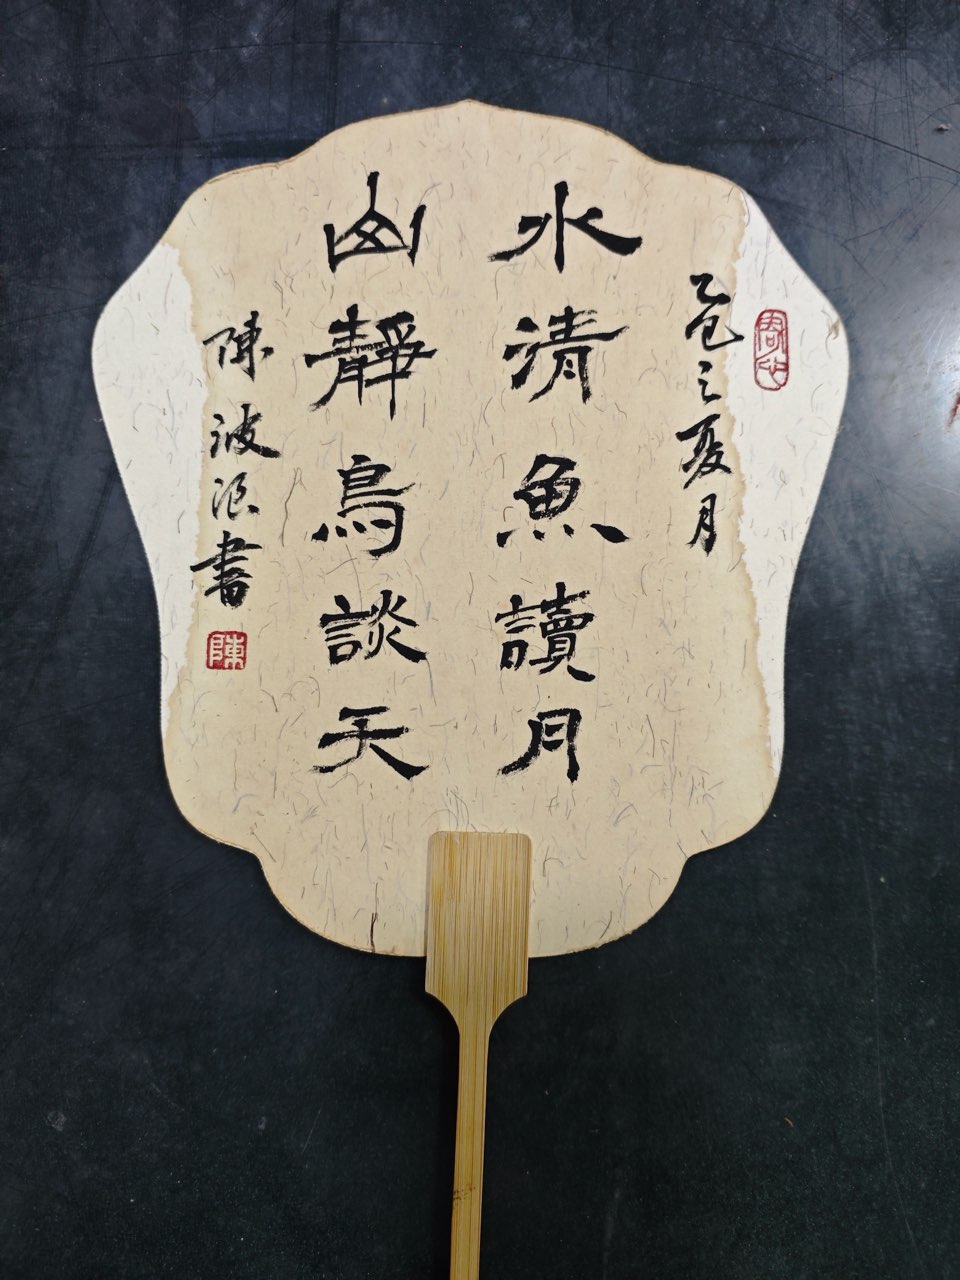 乙巳之夏月
水清魚讀月
山靜鳥談天
陳波浪書
陳